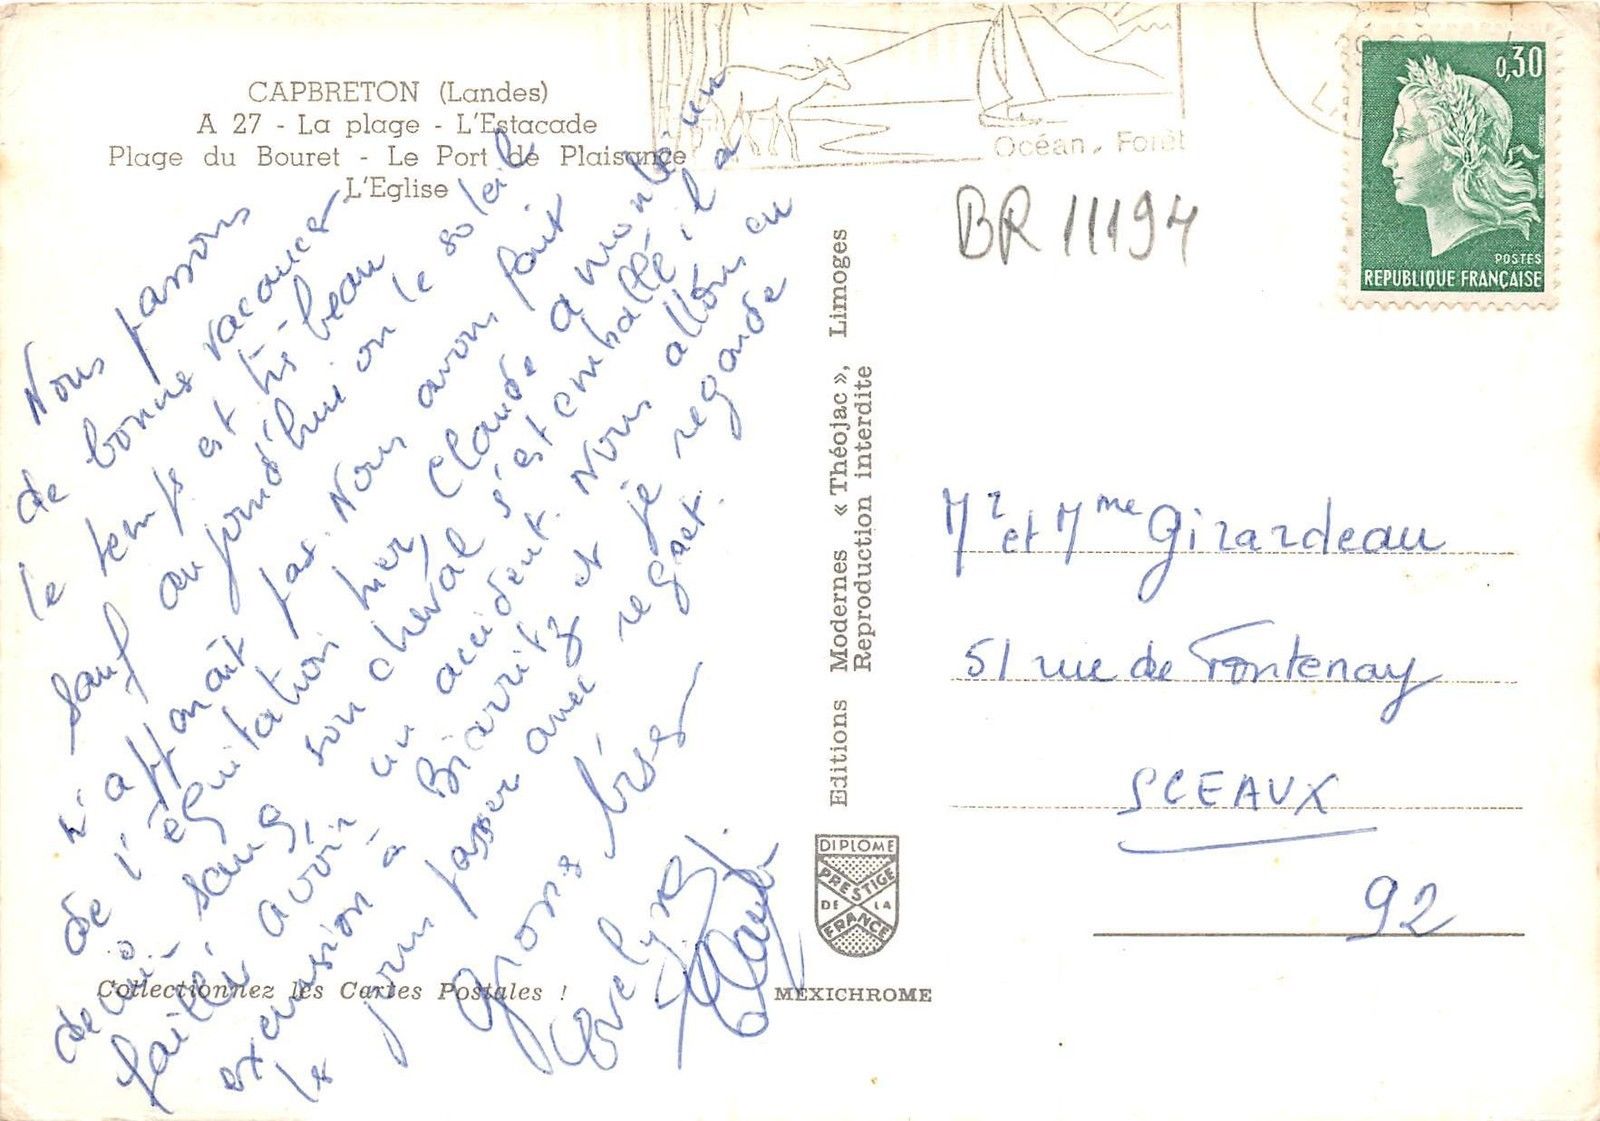 CAPBRETON (Landes)
A 27 - La plage - L'Estacade
Plage du Bouret - Le Port de Plaisance
L'Eglise
Nous passons
de bonnes vacances
le temps est très beau
sauf aujourd'hui on le soleil
n'apparait pas. Nous avons fait
de l'équitation hier, Claude a monté un
demi-sang, son cheval s'est emballé, il a
failli avoir un accident. Nous allons en
excursion à Biarritz et je regarde
les jours passer avec regret.
Grosses bises
Evelyne
Claude
Collectionnez les Cartes Postales !
Editions Modernes « Théojac », Limoges
Reproduction interdite
DIPLOME
PRESTIGE
DE LA
FRANCE
MEXICHROME
Océan. Forêt
BR 11194
0,30
POSTES
REPUBLIQUE FRANÇAISE
Mr et Mme Girardeau
51 rue de Fontenay
SCEAUX
92